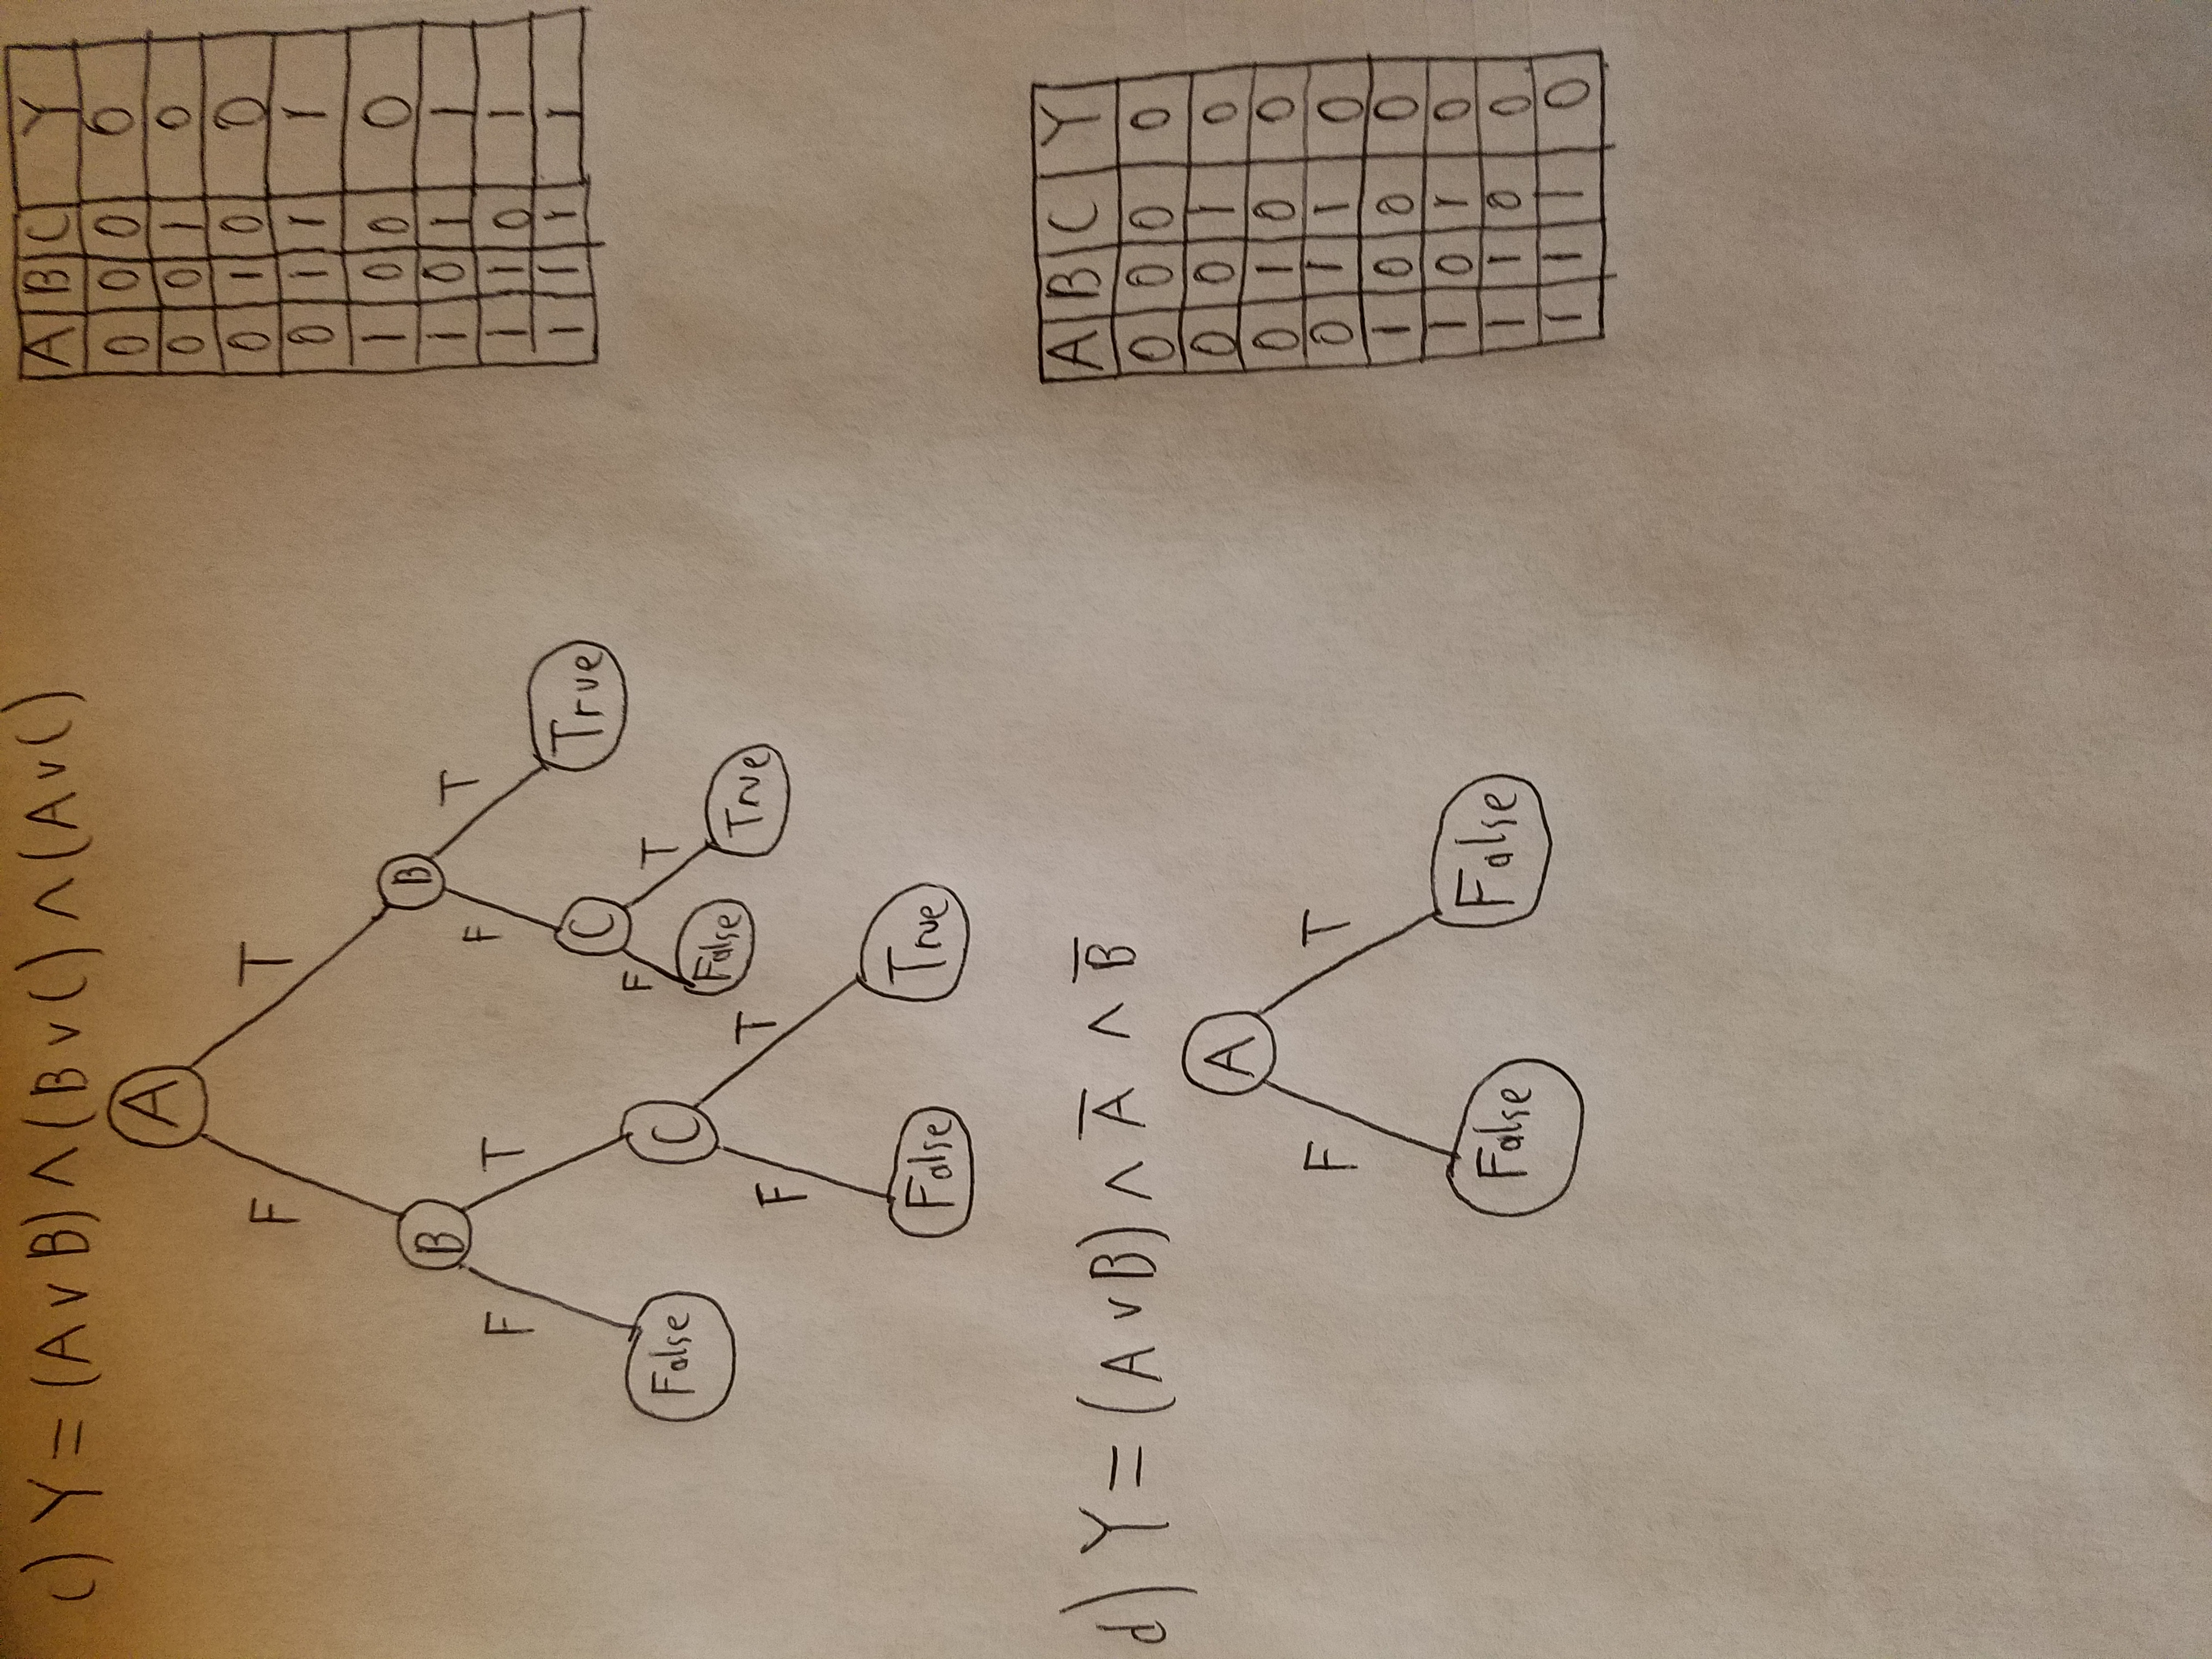 c) Y = (A ∨ B) ∧ (B ∨ C) ∧ (A ∨ C)
A
F T
B B
F T F T
False C C True
F T F T
False True False True
A B C Y
0 0 0 0
0 0 1 0
0 1 0 0
0 1 1 1
1 0 0 0
1 0 1 1
1 1 0 1
1 1 1 1
d) Y = (A ∨ B) ∧ A̅ ∧ B̅
A
F T
False False
A B C Y
0 0 0 0
0 0 1 0
0 1 0 0
0 1 1 0
1 0 0 0
1 0 1 0
1 1 0 0
1 1 1 0